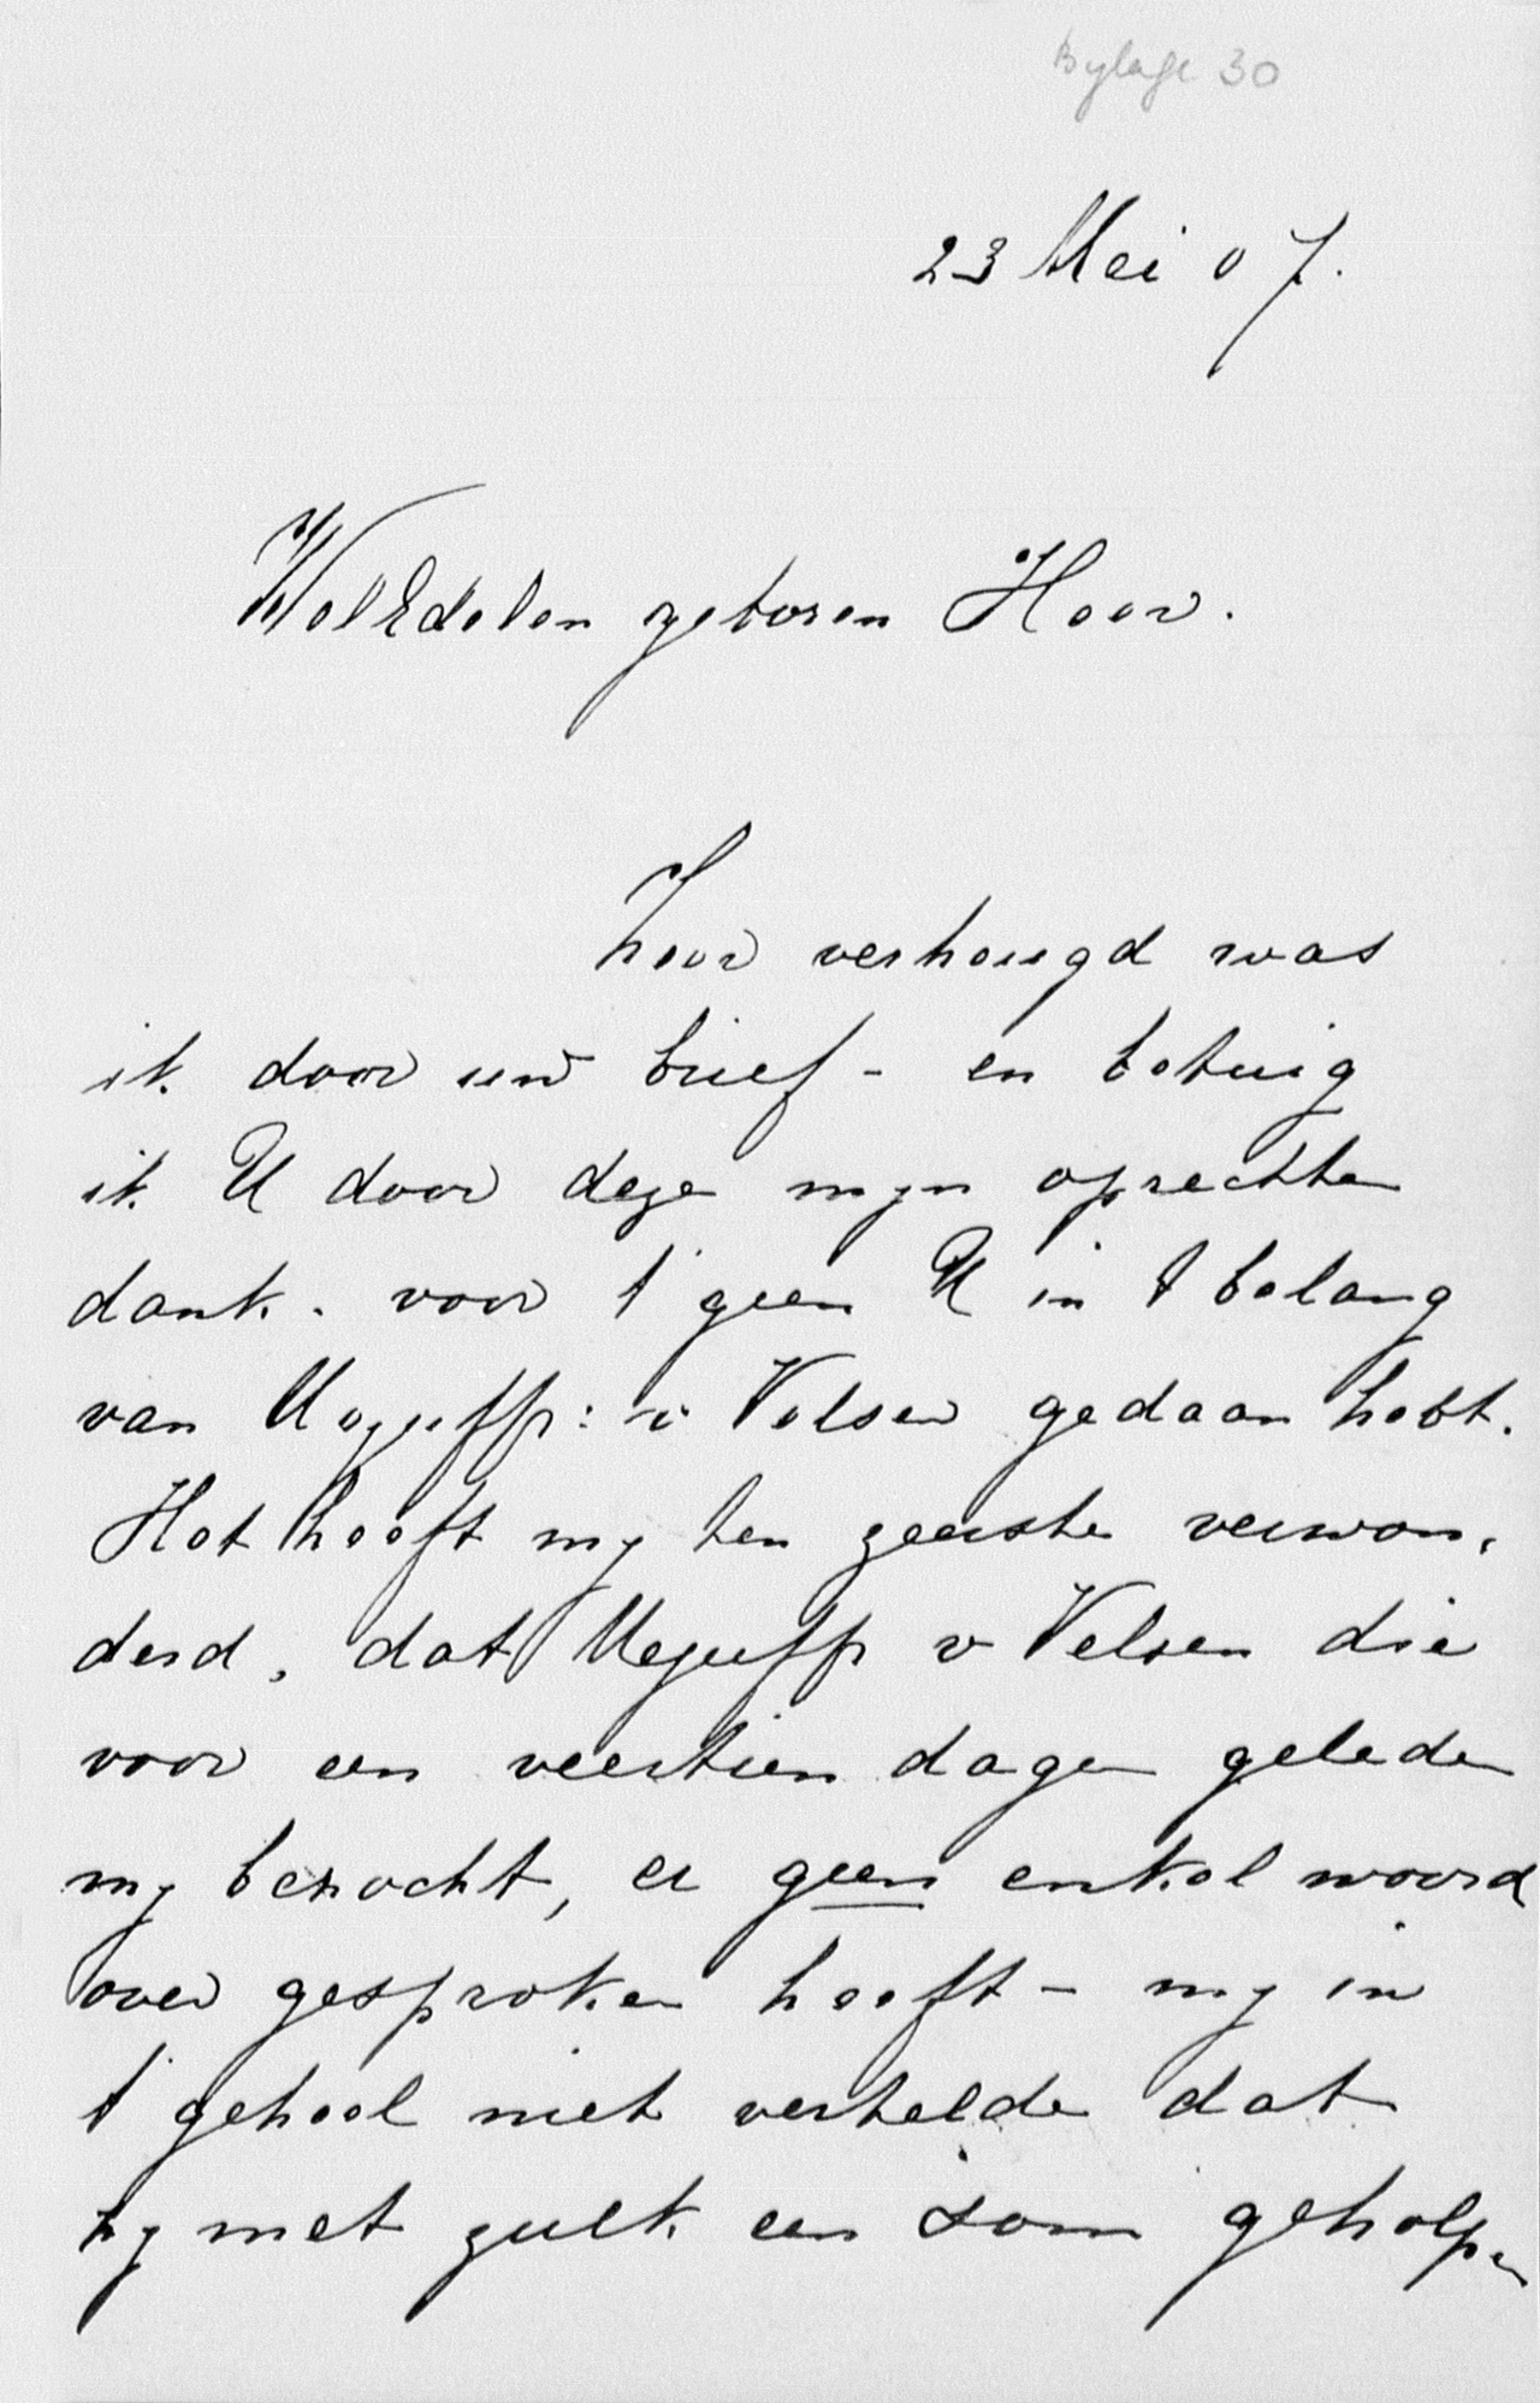 Bylage 30
23 Mei 07.
WelEdelen geboren Heer.
Zeer verheugd was
ik door uw brief - en betuig
ik U door deze myn oprechten
dank. voor 't geen U in 't belang
van Mejuffr: v Velsen gedaan hebt.
Het heeft my ten zeerste verwon,
derd, dat Mejuffr v Velsen die
voor een veertien dagen geleden
my bezocht, er geen enkel woord
over gesproken heeft - my in
't geheel niet vertelde dat
zy met zulk een som geholpen